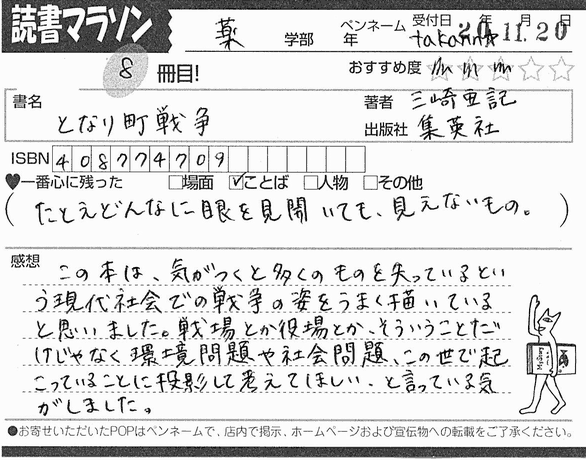 読書マラソン
薬 学部 年 ペンネーム takann☆ 受付日 20年11月20日
8 冊目! おすすめ度 ☆☆☆☆☆
書名 となり町戦争
著者 三崎亜記
出版社 集英社
ISBN 4087747409
♥一番心に残った □場面 ☑ことば □人物 □その他
(たとえどんなに眼を見開いても、見えないもの。)
感想
この本は、気がつくと多くのものを失っているとい
う現代社会での戦争の姿をうまく描いている
と思いました。戦場とか役場とか、そういうことだ
けじゃなく環境問題や社会問題、この世で起
こっていることに投影して考えてほしい、と言っている気
がしました。
●お寄せいただいたPOPはペンネームで、店内で掲示、ホームページおよび宣伝物への転載をご了承ください。